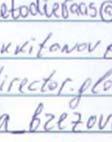 etodiefaas@
kkitanov e
director.glo
a_brezov